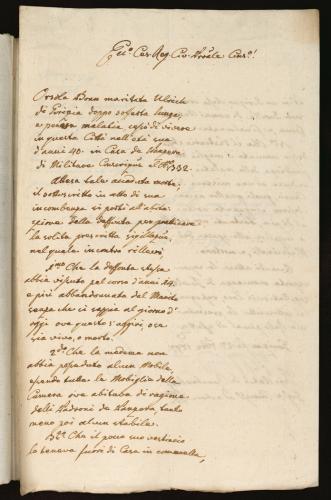 Orsola Bran maritata Ulrich
da Gorizia doppo sofferta lunga,
e penosa malatia cessò di vivere
in questa Città nell'età sua
d'anni 40. in Casa da
di Militare 332.
Attesa tale accaduta morte,
il sottoscritto in atto di sua
incombenza si portò all'abita-
zione della deffonta per praticare
la solita prescritta
nel quale incontro rilevò,
1mo Che la deffonta stessa
abbia vissuto pel corso d'anni 24.
e più abbandonata dal Marito
senza che si sappia al giorno d'
oggi ove questo s'aggiri, o se
sia vivo, o morto.
2do Che la medema non
abbia posseduto alcun Mobile,
essendo tutta la Mobiglia della
Camera ove abitava di ragione
delli Padroni da tanto
meno poi alcun stabile.
3zo Che il poco suo vestiario
lo teneva fuori di Casa in